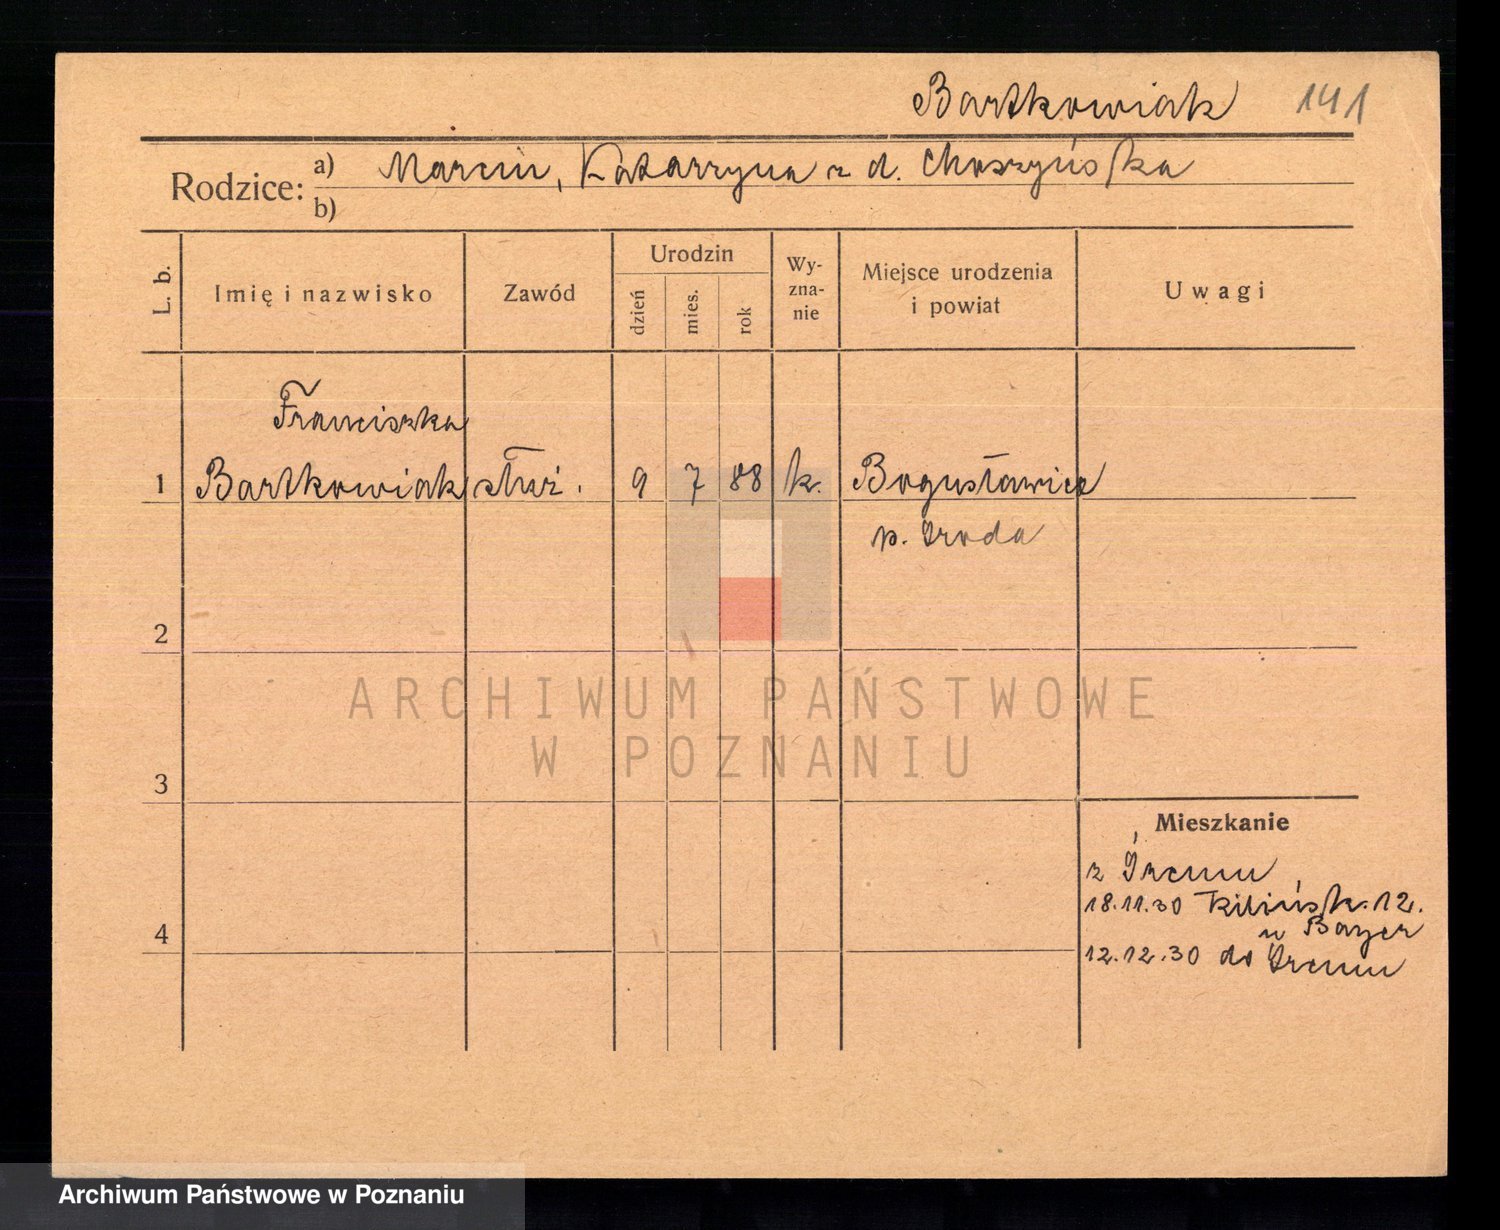 Bartkowiak 141
Rodzice: a) Marcin, Katarzyna z d. Choszyńska
b)
L. b.
Imię i nazwisko
Zawód
Urodzin
dzień
mies.
rok
Wy-
zna-
nie
Miejsce urodzenia
i powiat
Uwagi
Franciszka
1 Bartkowiak służ. 9 7 88 k. Bogusławice
p. Środa
2
3
4
ARCHIWUM PAŃSTWOWE
W POZNANIU
Mieszkanie
z Śremu
18.11.30 Kilińsk. 12.
u Bayer
12.12.30 do Śremu
Archiwum Państwowe w Poznaniu